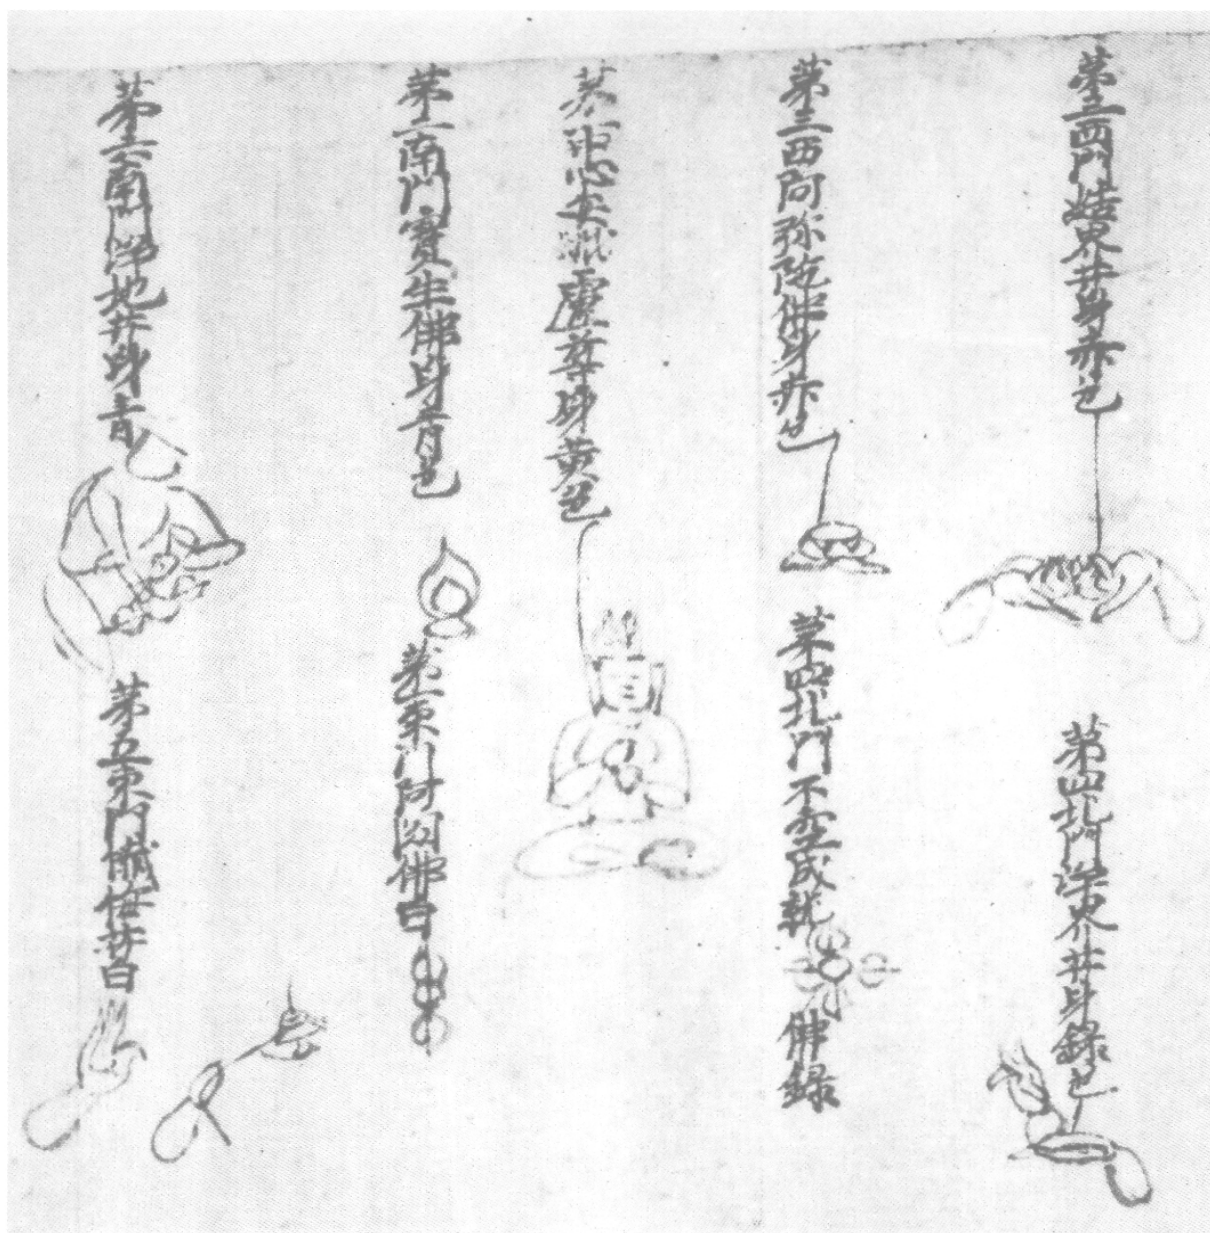 第三西門結界𦬇身赤色
第四北門界𦬇身録色
第三西阿弥陁佛身赤色
第四北門不空成就佛録
中心安毗盧尊身黄色
第二南門寶生佛身青色
第一東門阿閦佛白
第六南門净地𦬇身青
第五東門懺悔𦬇白